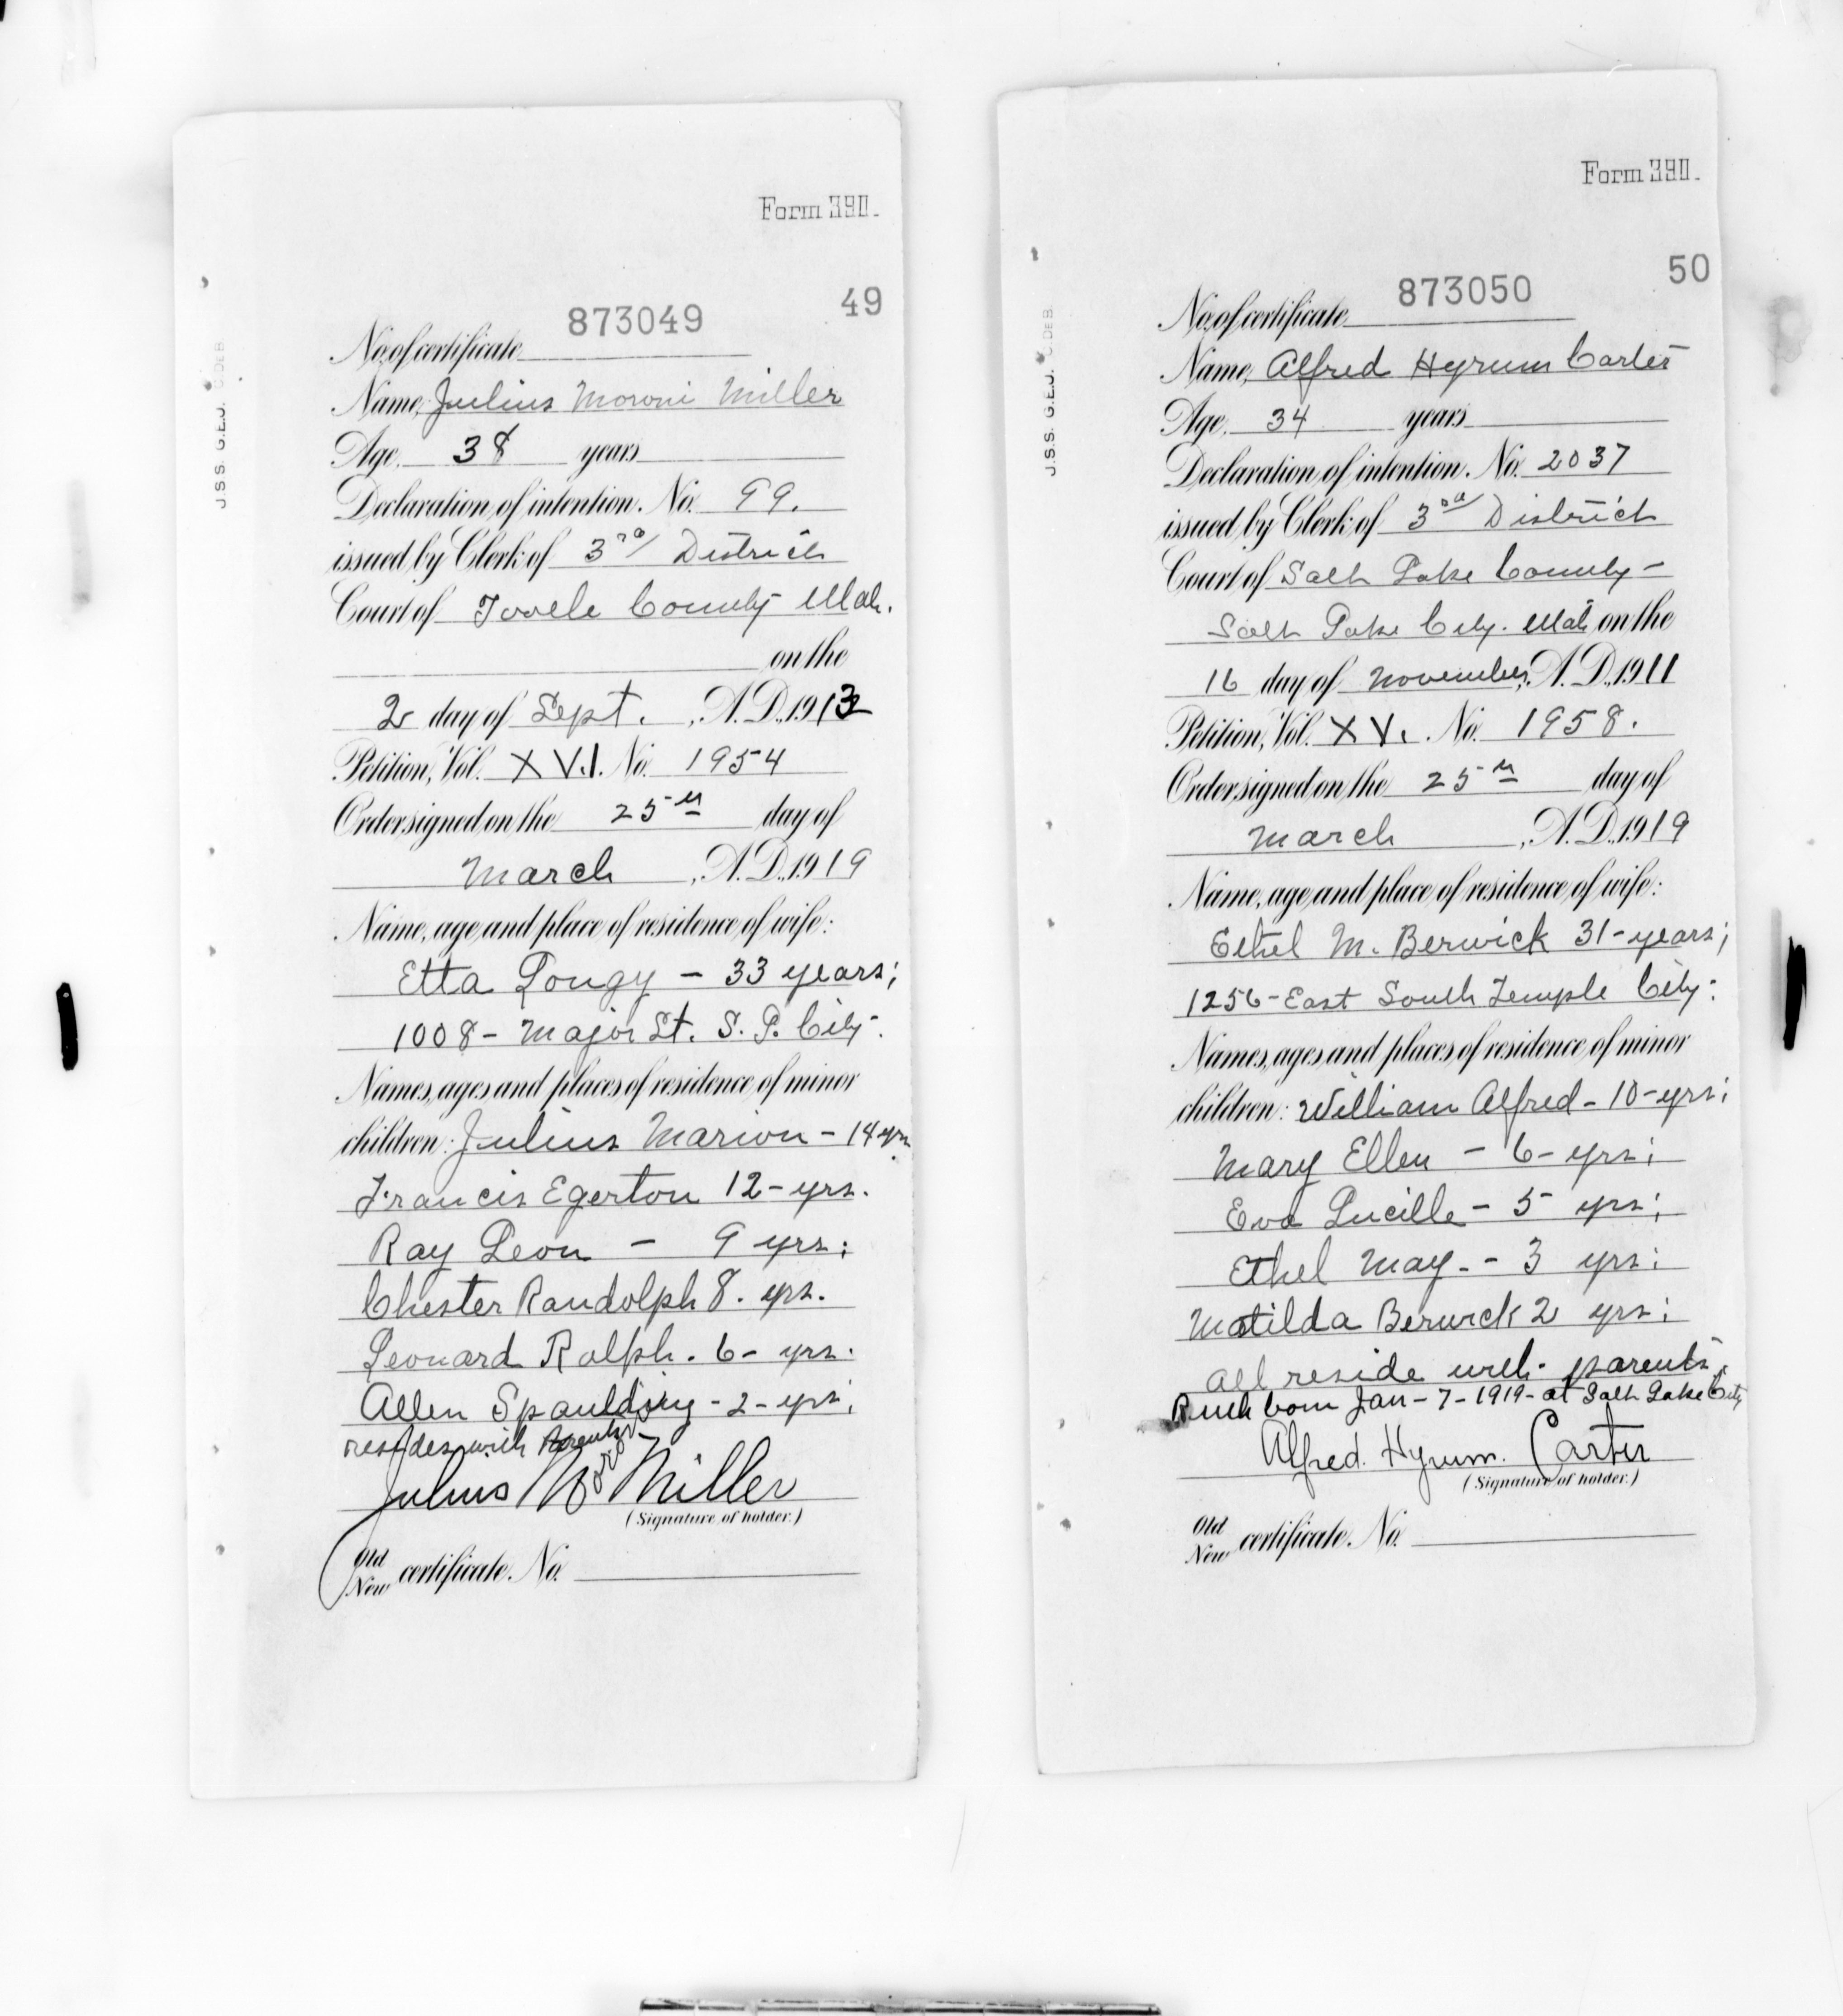 Form 390.
873049 49
No. of certificate
Name, Julius Moroni Miller
Age, 38 years
Declaration of intention, No. 99.
issued by Clerk of 3rd District
Court of Tooele County Utah.
on the
2 day of Sept., A.D. 1913
Petition, Vol. XVI. No. 1954
Order signed on the 25th day of
March, A.D. 1919
Name, age and place of residence of wife:
Etta Longy - 33 years;
1008 - Major St. S. L. City.
Names, ages and places of residence of minor
children: Julius Marion - 14 yrs.
Francis Egerton 12 - yrs.
Ray Leon - 9 yrs;
Chester Randolph 8. yrs.
Leonard Ralph. 6 - yrs.
Allen Spaulding - 2 - yrs;
resides with Parents
Julius Miller
(Signature of holder.)
Old
New certificate. No.
J.S.S. G.E.J.
Form 390.
873050 50
No. of certificate
Name, Alfred Hyrum Carter
Age, 34 years
Declaration of intention, No. 2037
issued by Clerk of 3rd District
Court of Salt Lake County -
Salt Lake City. Utah on the
16 day of November, A.D. 1911
Petition, Vol. XV. No. 1958.
Order signed on the 25th day of
March, A.D. 1919
Name, age and place of residence of wife:
Ethel M. Berwick 31 - years;
1256 - East South Temple City.
Names, ages and places of residence of minor
children: William Alfred - 10 - yrs;
Mary Ellen - 6 - yrs;
Eva Lucille - 5 yrs;
Ethel May - - 3 yrs;
Matilda Berwick 2 yrs;
all reside with parents.
Ruth born Jan - 7 - 1919 - at Salt Lake City
Alfred. Hyrum. Carter
(Signature of holder.)
Old
New certificate. No.
J.S.S. G.E.J. C.DEB.